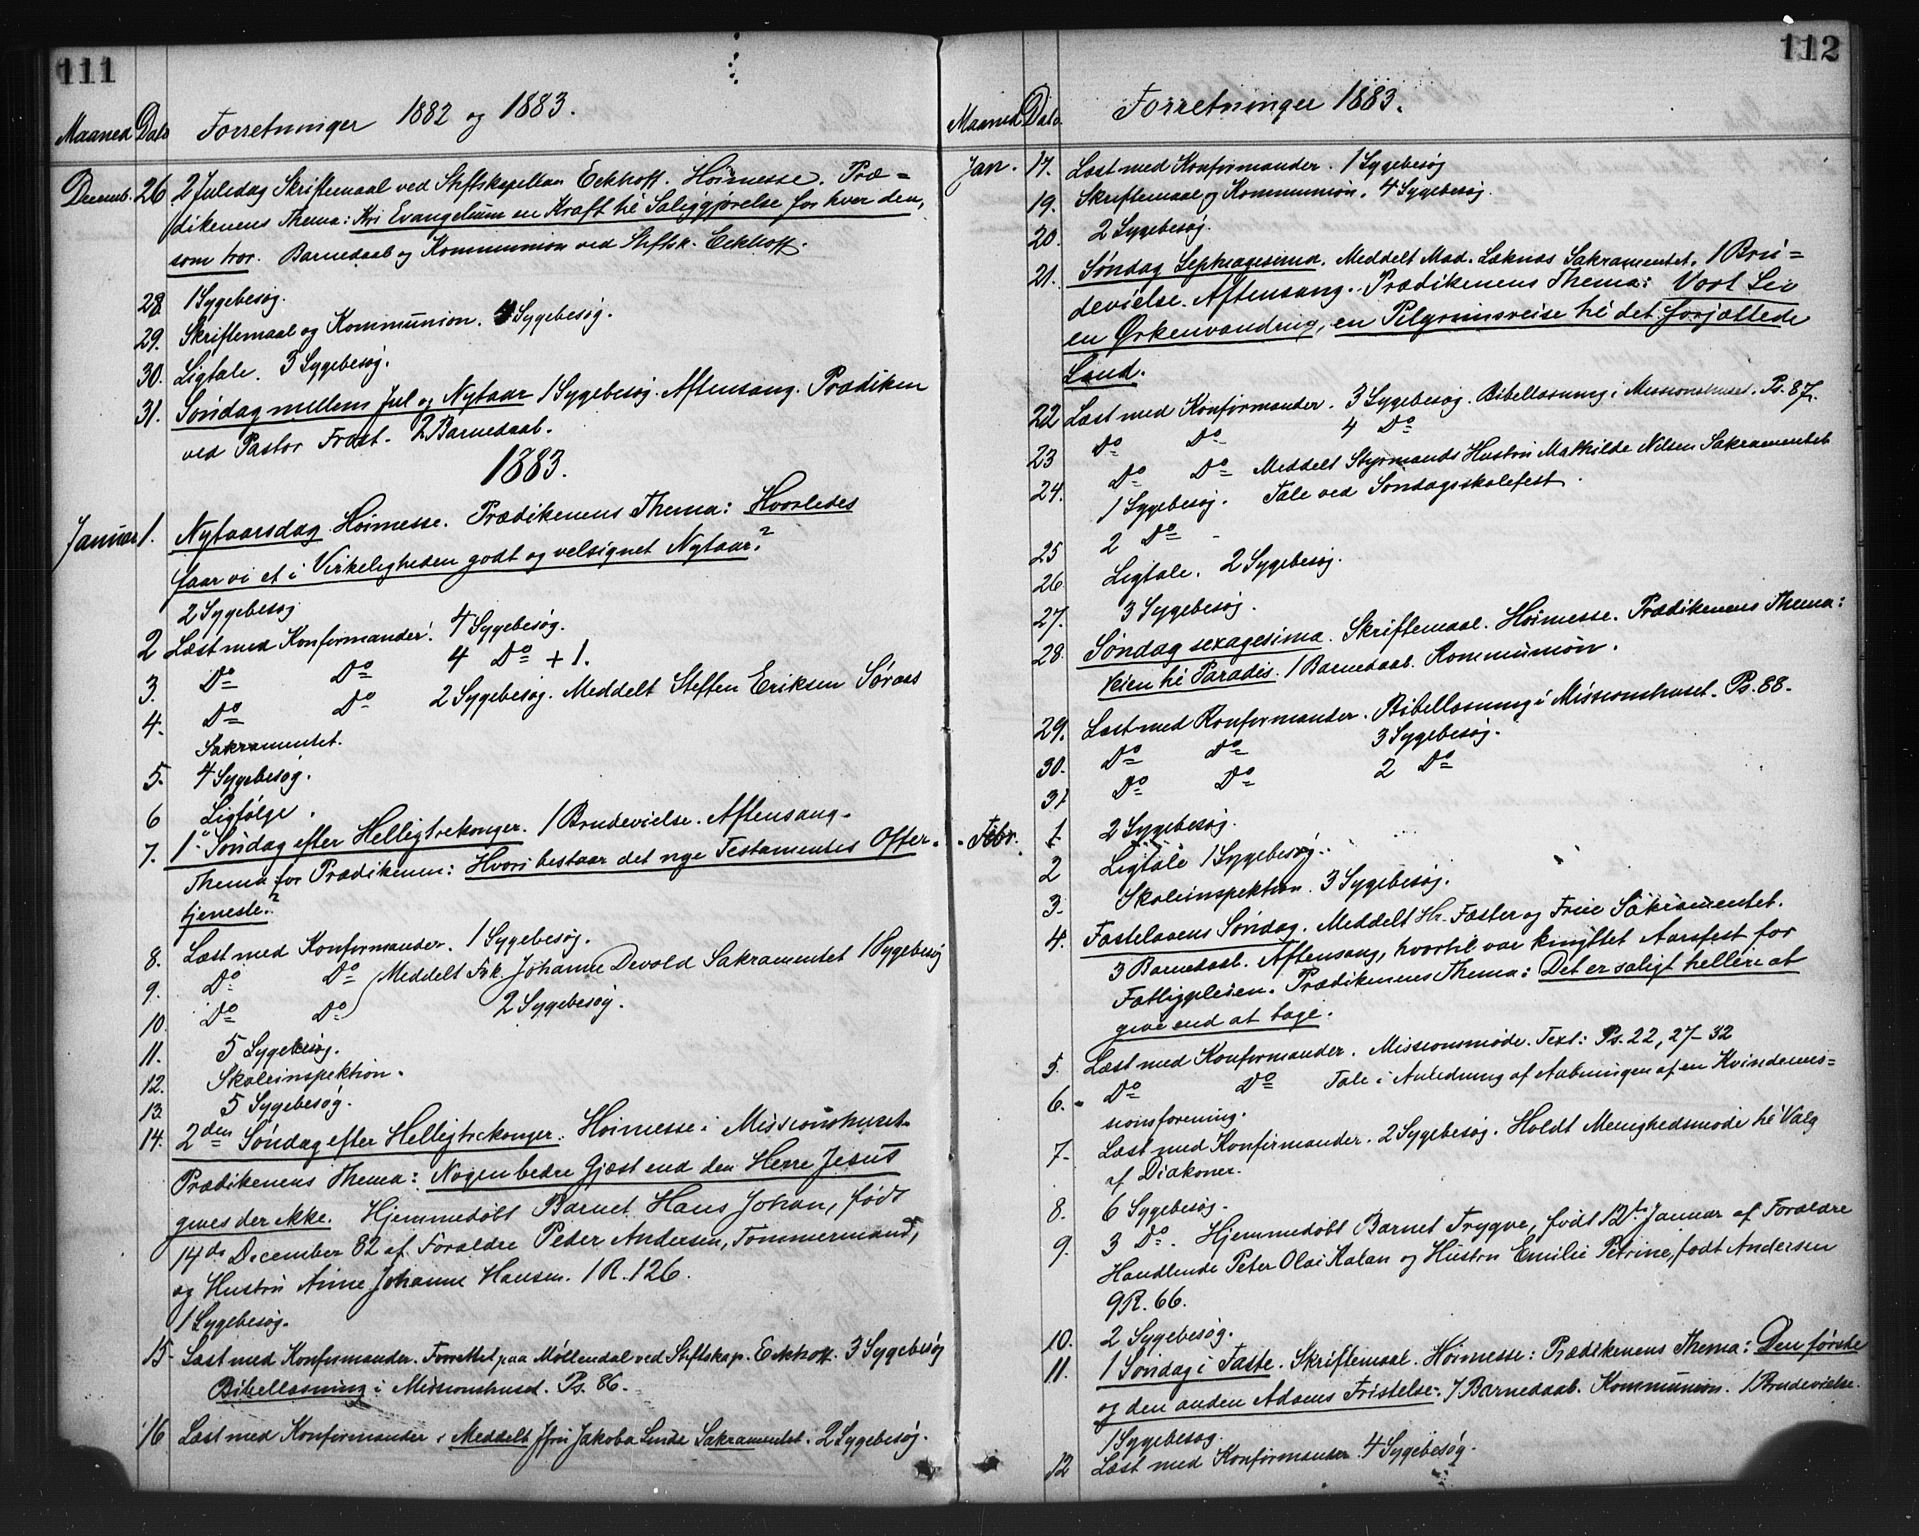 111
Maaned Dato Forretninger 1882 og 1883.
Decemb. 26 2 Juledag Skriftemaal ved Stiftskapellan Eckhoff. Høimesse. Præ=
dikenens Thema: Evangelium en Kraft til Saliggjørelse for hver den,
som tror. Barnedaab og Kommunion ved Stiftsk. Eckhoff.
28. 1 Sygebesøg.
29. Skriftemaal og Kommunion. 3 Sygebesøg.
30. Ligtale. 3 Sygebesøg.
31. Søndag mellem Jul og Nytaar 1 Sygebesøg. Aftensang. Prædiken
ved Pastor Frost. 2 Barnedaab.
1883.
Januar 1. Nytaarsdag Høimesse. Prædikenens Thema: Hvorledes
faar vi et i Virkeligheden godt og velsignet Nytaar?
2 Sygebesøg
2 Læst med Konfirmander. 4 Sygebesøg.
3. Do Do 4 Do + 1.
4. Do Do 2 Sygebesøg. Meddelt Steffen Eriksen Søraas
Sakramentet.
5. 4 Sygebesøg.
6 Ligfølge.
7. 1ste Søndag efter Helligtrekonger. 1 Brudevielse. Aftensang.
Thema for Prædikenen: Hvori bestaar det nye Testamentes Offer-
tjeneste?
8. Læst med Konfirmander. 1 Sygebesøg.
9. Do Do Meddelt Frk. Johanne Devold Sakramentet 1 Sygebesøg
10. Do Do 2 Sygebesøg.
11. 5 Sygebesøg.
12. Skoleinspektion.
13. 5 Sygebesøg.
14. 2den Søndag efter Helligtrekonger. Høimesse i Missionshuset.
Prædikenens Thema: Nogen bedre Gjæst end den Herre Jesus
gives der ikke. Hjemmedøbt Barnet Hans Johan, født
14de December 82 af Forældre Peder Andersen, Tømmermand,
og Hustru Anne Johanne Hansen. 1 R. 126.
1 Sygebesøg.
15. Læst med Konfirmander. Forrettet paa Møllendal ved Stiftskap. Eckhoff. 3 Sygebesøg
Bibellæsning i Missionshuset. Ps. 86.
16 Læst med Konfirmander. Meddelt Jfru Jakoba Linde Sakramentet. 2 Sygebesøg.
112
Maaned Dato Forretninger 1883.
Jan. 17. Læst med Konfirmander. 1 Sygebesøg
19. Skriftemaal og Kommunion. 4 Sygebesøg.
20. 2 Sygebesøg.
21. Søndag Septuagesima. Meddelt Mad. Sakramentet. 1 Bru=
devielse. Aftensang. Prædikenens Thema: Vort Liv
en Ørkenvandring, en Pilgrimsreise til det forjættede
Land.
22 Læst med Konfirmander. 3 Sygebesøg. Bibellæsning i Missionshuset. Ps. 87.
23 Do Do 4 Do
24. Do Do Meddelt Styrmands Hustru Mathilde Nilsen Sakramentet
1 Sygebesøg. Tale ved Søndagsskolefest.
25 2 Do
26 Ligtale. 2 Sygebesøg.
27. 3 Sygebesøg.
28. Søndag sexagesima. Skriftemaal. Høimesse. Prædikenens Thema:
Veien til Paradis. 1 Barnedaab. Kommunion.
29. Læst med Konfirmander. Bibellæsning i Missionshuset. Ps. 88.
30. Do Do 3 Sygebesøg.
31 Do Do 2 Do
Febr. 1. 2 Sygebesøg.
2 Ligtale 1 Sygebesøg.
3. Skoleinspektion. 3 Sygebesøg.
4. Fastelavens Søndag. Meddelt Hr. Faster og Frue Sakramentet.
3 Barnedaab. Aftensang, hvortil var knyttet Aarsfest for
Fattigpleien. Prædikenens Thema: Det er saligt hellere at
give end at tage.
5. Læst med Konfirmander. Missionsmøde. Text: Ps. 22, 27-32
6. Do Do Tale i Anledning af Aabningen af en Kvindemis=
sionsforening.
7. Læst med Konfirmander. 2 Sygebesøg. Holdt Menighedsmøde til Valg
af Diakoner.
8. 6 Sygebesøg.
9. 3 Do. Hjemmedøbt Barnet Trygve, født 12te Januar af Forældre
Handlende Peter Olai Kalan og Hustru Emilie Petrine, født Andersen
9 R. 66.
10. 2 Sygebesøg.
11. 1 Søndag i Faste. Skriftemaal. Høimesse: Prædikenens Thema: Den første
og den anden Adams Fristelse. 7 Barnedaab. Kommunion. 1 Brudevielse.
1 Sygebesøg.
12 Læst med Konfirmander 4 Sygebesøg.